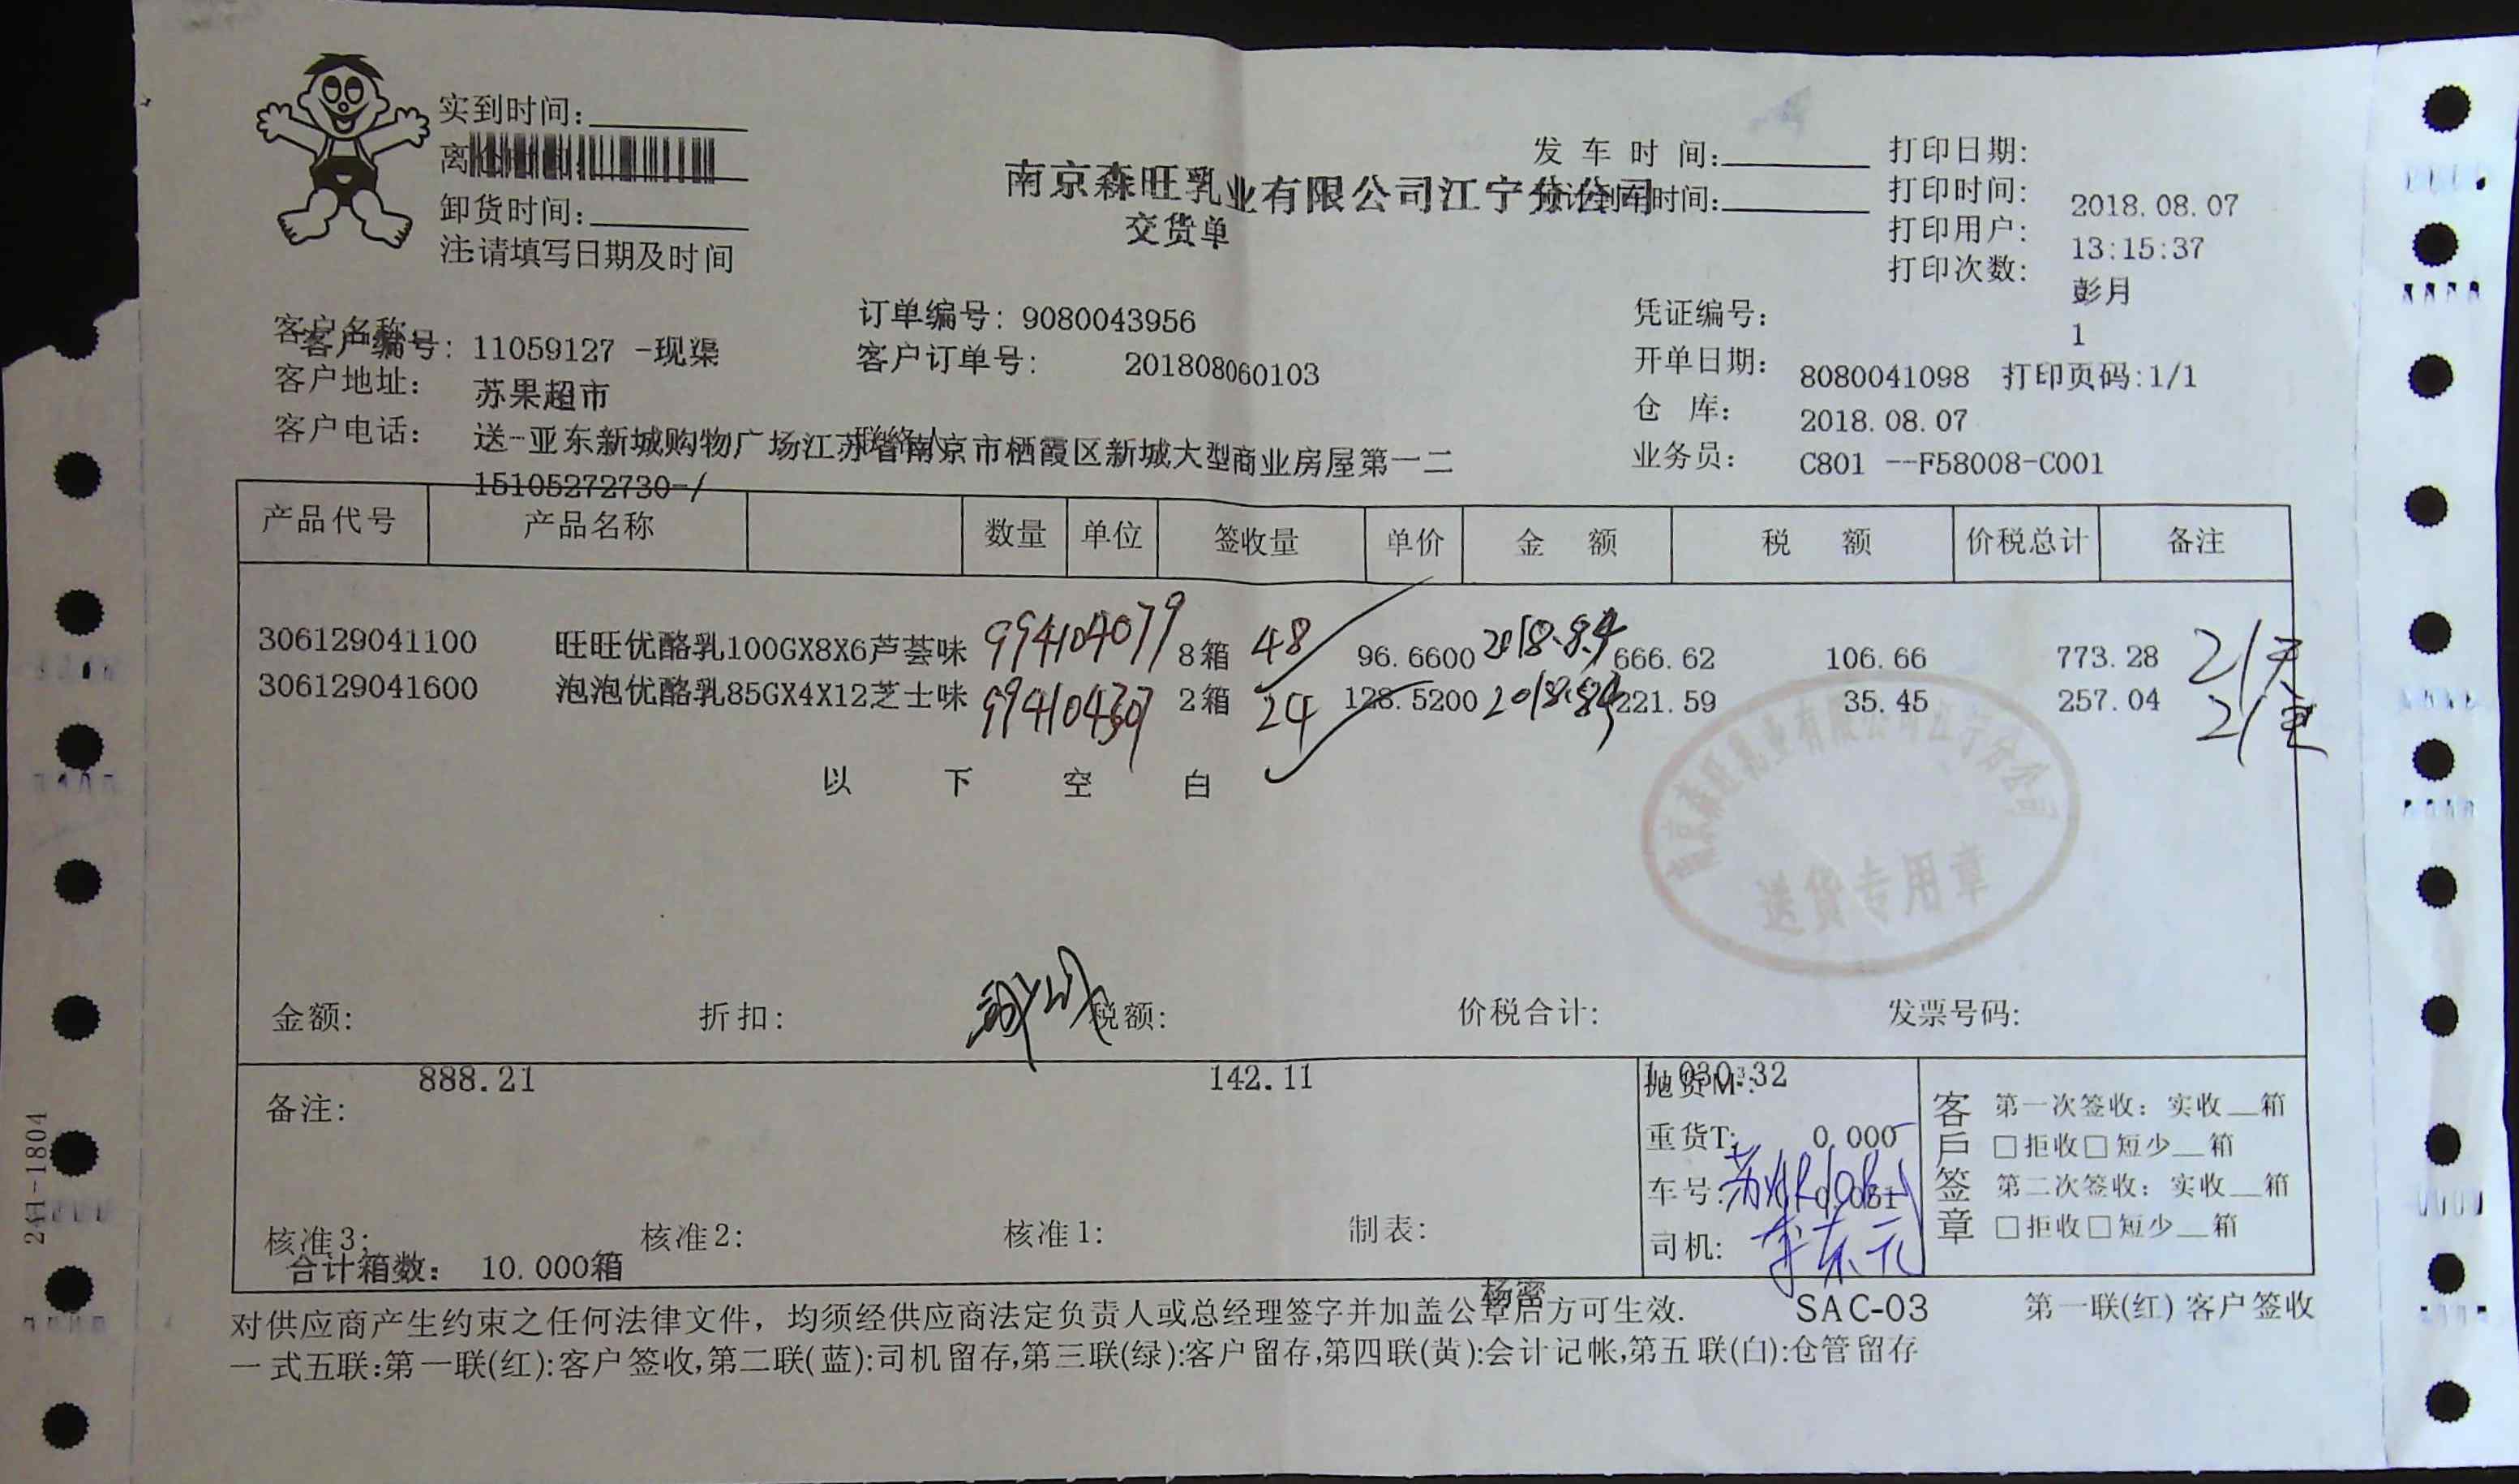 实到时间:
离
卸货时间:
注:请填写日期及时间
南京森旺乳业有限公司江宁分公司
交货单
发车时间:
预计到车时间:
打印日期: 2018.08.07
打印时间: 13:15:37
打印用户: 彭月
打印次数: 1
客户名称:
客户编号: 11059127 -现渠
苏果超市
客户地址: 送-亚东新城购物广场江苏省南京市栖霞区新城大型商业房屋第一二
客户电话: 15105272730-/
联络人
订单编号: 9080043956
客户订单号: 201808060103
凭证编号: 8080041098 打印页码:1/1
开单日期: 2018.08.07
仓 库: C801 --F58008-C001
业务员:
产品代号 产品名称 数量 单位 签收量 单价 金 额 税 额 价税总计 备注
306129041100 旺旺优酪乳100GX8X6芦荟味 994104079 8箱 48 96.6600 2018.8.4 666.62 106.66 773.28 21天
306129041600 泡泡优酪乳85GX4X12芝士味 2箱 24 128.5200 2018.8.4 221.59 35.45 257.04 21天
以 下 空 白
南京森旺乳业有限公司江宁分公司
送货专用章
金额: 折扣: 税额: 价税合计: 发票号码:
888.21 142.11 1,030.32
备注:
抛货M³:
重货T: 0.000
车号: 0.081
司机:
核准3: 核准2: 核准1: 制表:
合计箱数: 10.000箱
杨蜜
客户签章
第一次签收: 实收__箱
□拒收□短少__箱
第二次签收: 实收__箱
□拒收□短少__箱
对供应商产生约束之任何法律文件, 均须经供应商法定负责人或总经理签字并加盖公章后方可生效. SAC-03 第一联(红) 客户签收
一式五联:第一联(红):客户签收,第二联(蓝):司机留存,第三联(绿):客户留存,第四联(黄):会计记帐,第五联(白):仓管留存